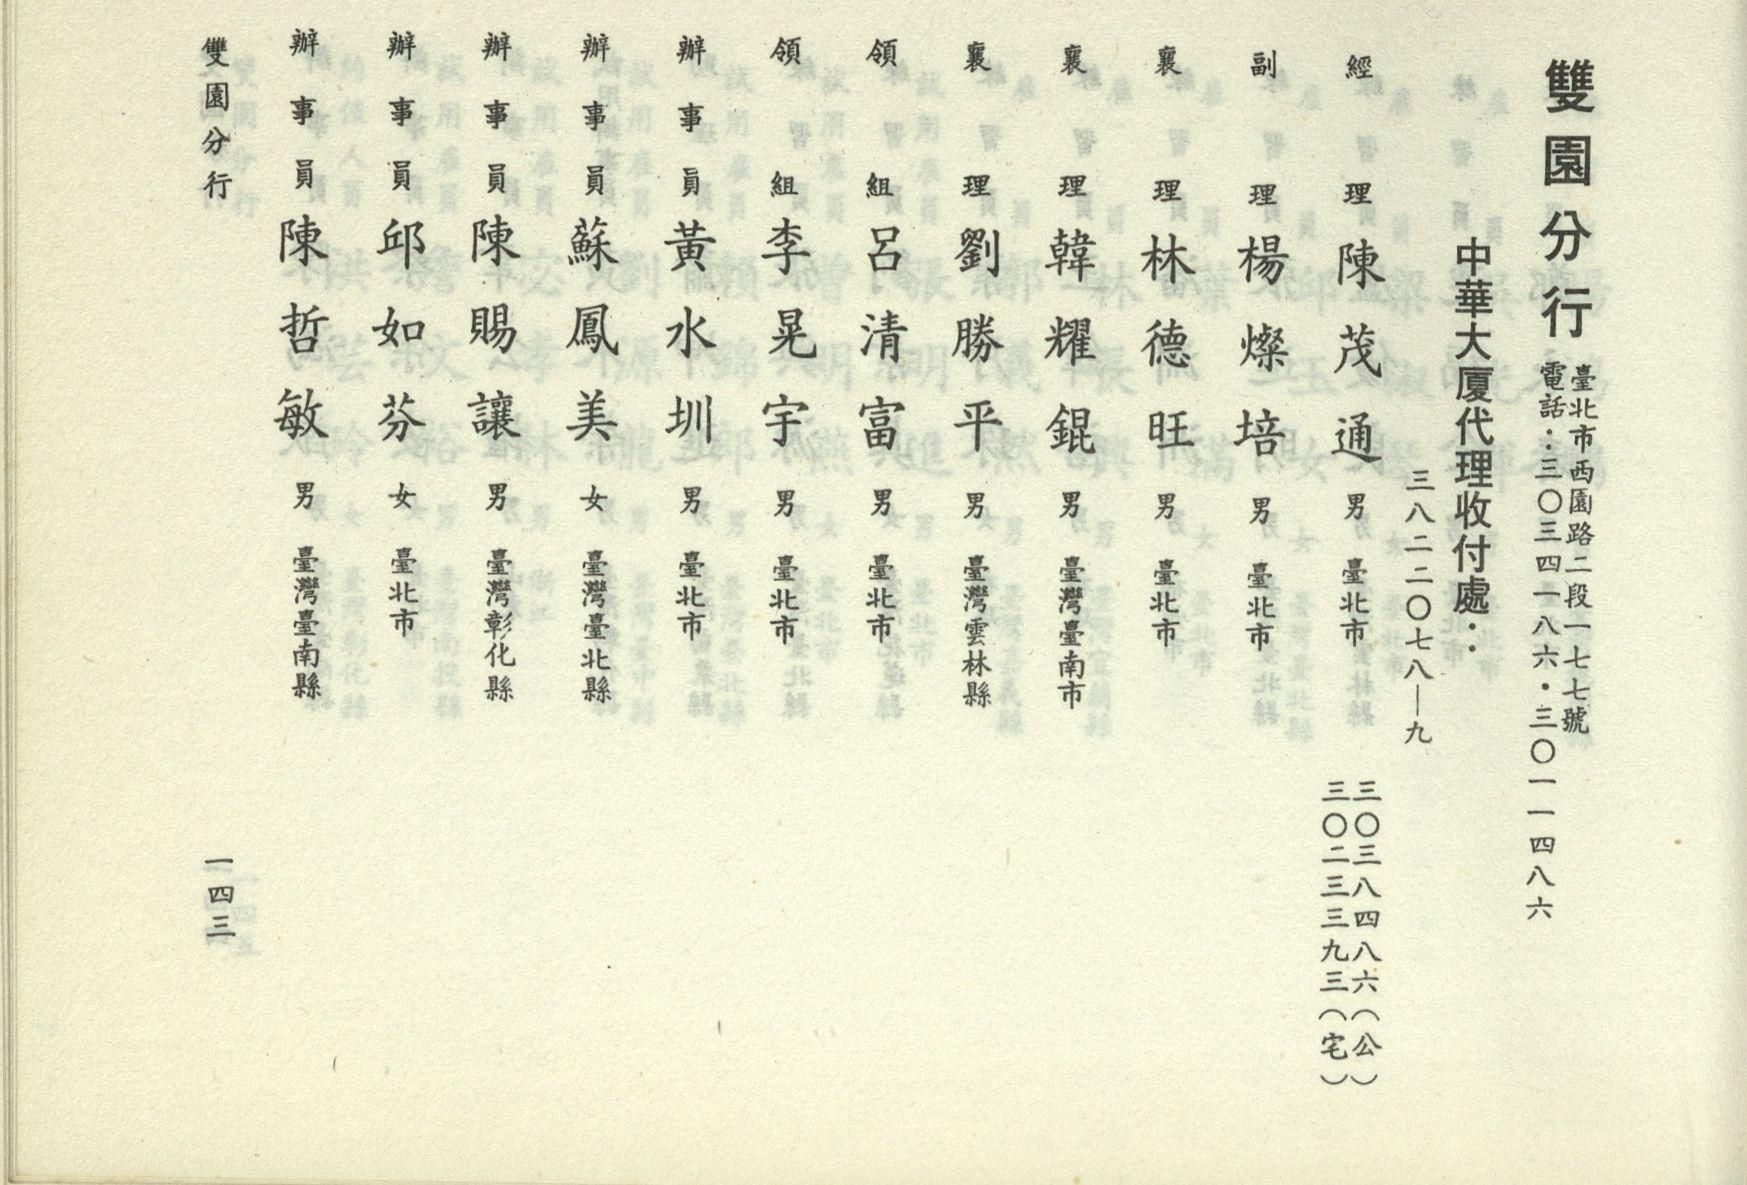 雙園分行
臺北市西園路二段一七七號
電話：三〇三四一八六・三〇一一四八六
中華大厦代理收付處：
三八二二〇七八—九
經理 陳茂通 男 臺北市 三〇三八四八六（公）
三〇二三三九三（宅）
副理 楊燦培 男 臺北市
襄理 林德旺 男 臺北市
襄理 韓耀錕 男 臺灣臺南市
襄理 劉勝平 男 臺灣雲林縣
領組 呂清富 男 臺北市
領組 李晃宇 男 臺北市
辦事員 黃水圳 男 臺北市
辦事員 蘇鳳美 女 臺灣臺北縣
辦事員 陳賜讓 男 臺灣彰化縣
辦事員 邱如芬 女 臺北市
辦事員 陳哲敏 男 臺灣臺南縣
雙園分行
一四三